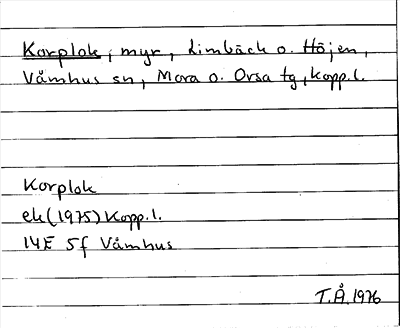 Korplok, myr, Limbäck o. Höjen,
Våmhus sn, Mora o. Orsa tg, Kopp.l.
Korplok
ek(1975) Kopp.l.
14E 5f Våmhus
T.Å. 1976